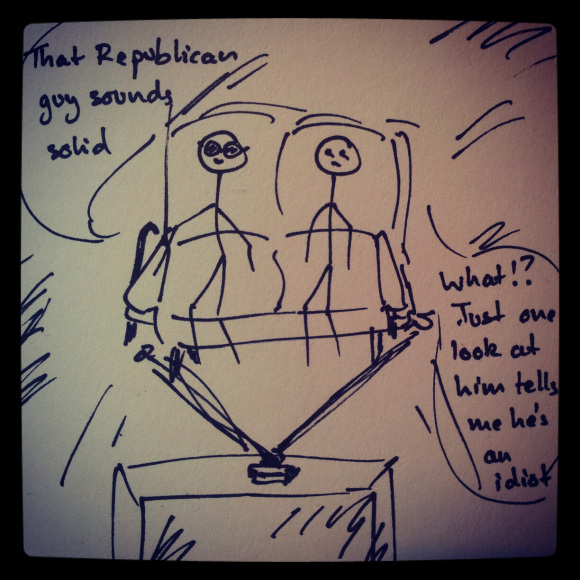 That Republican
guy sounds
solid
What!?
Just one
look at
him tells
me he's
an
idiot